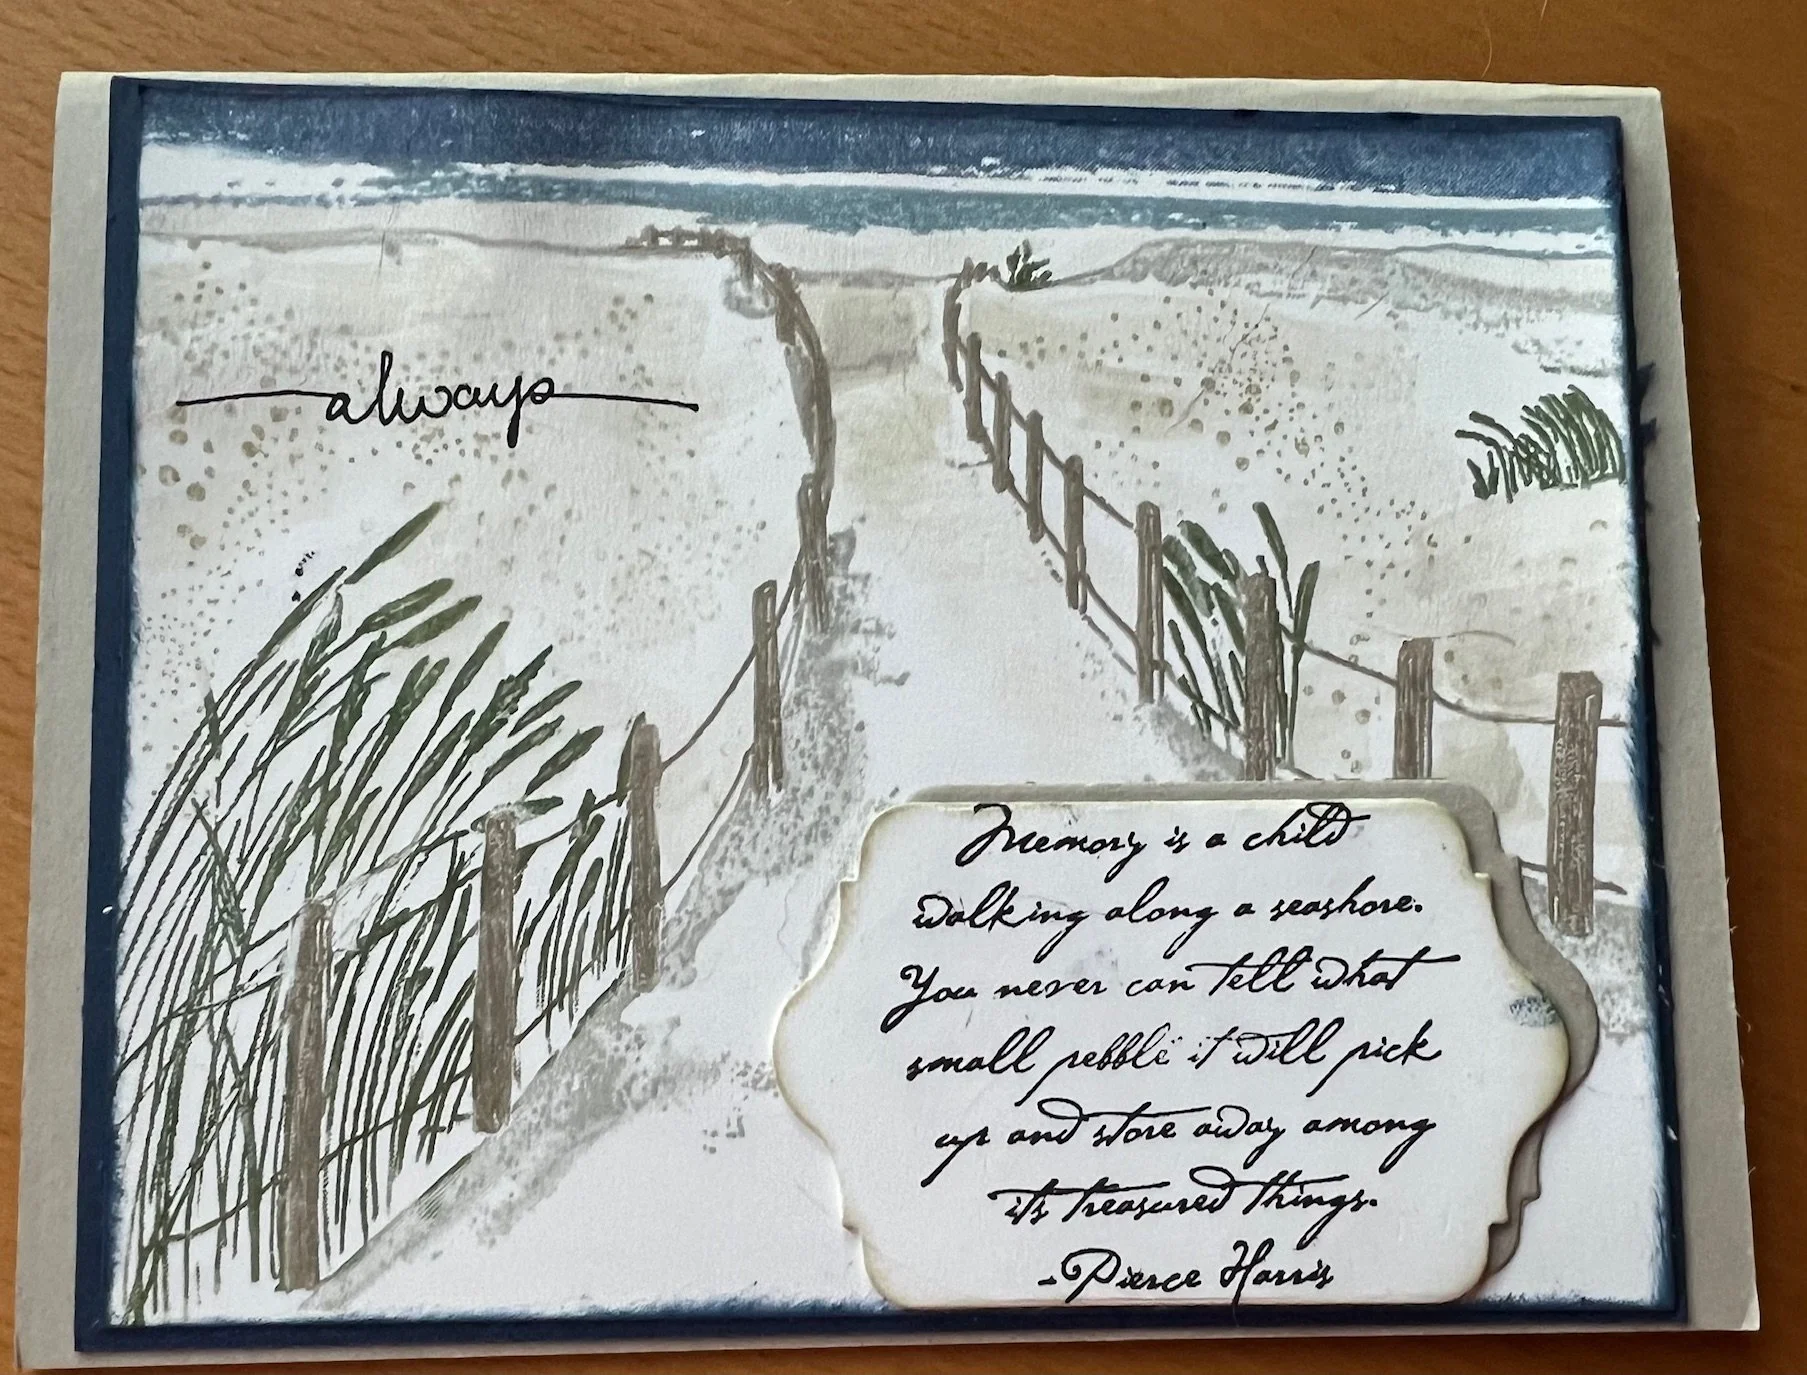 always
Memory is a child
walking along a seashore.
You never can tell what
small pebble it will pick
up and store away among
its treasured things.
-Pierce Harris